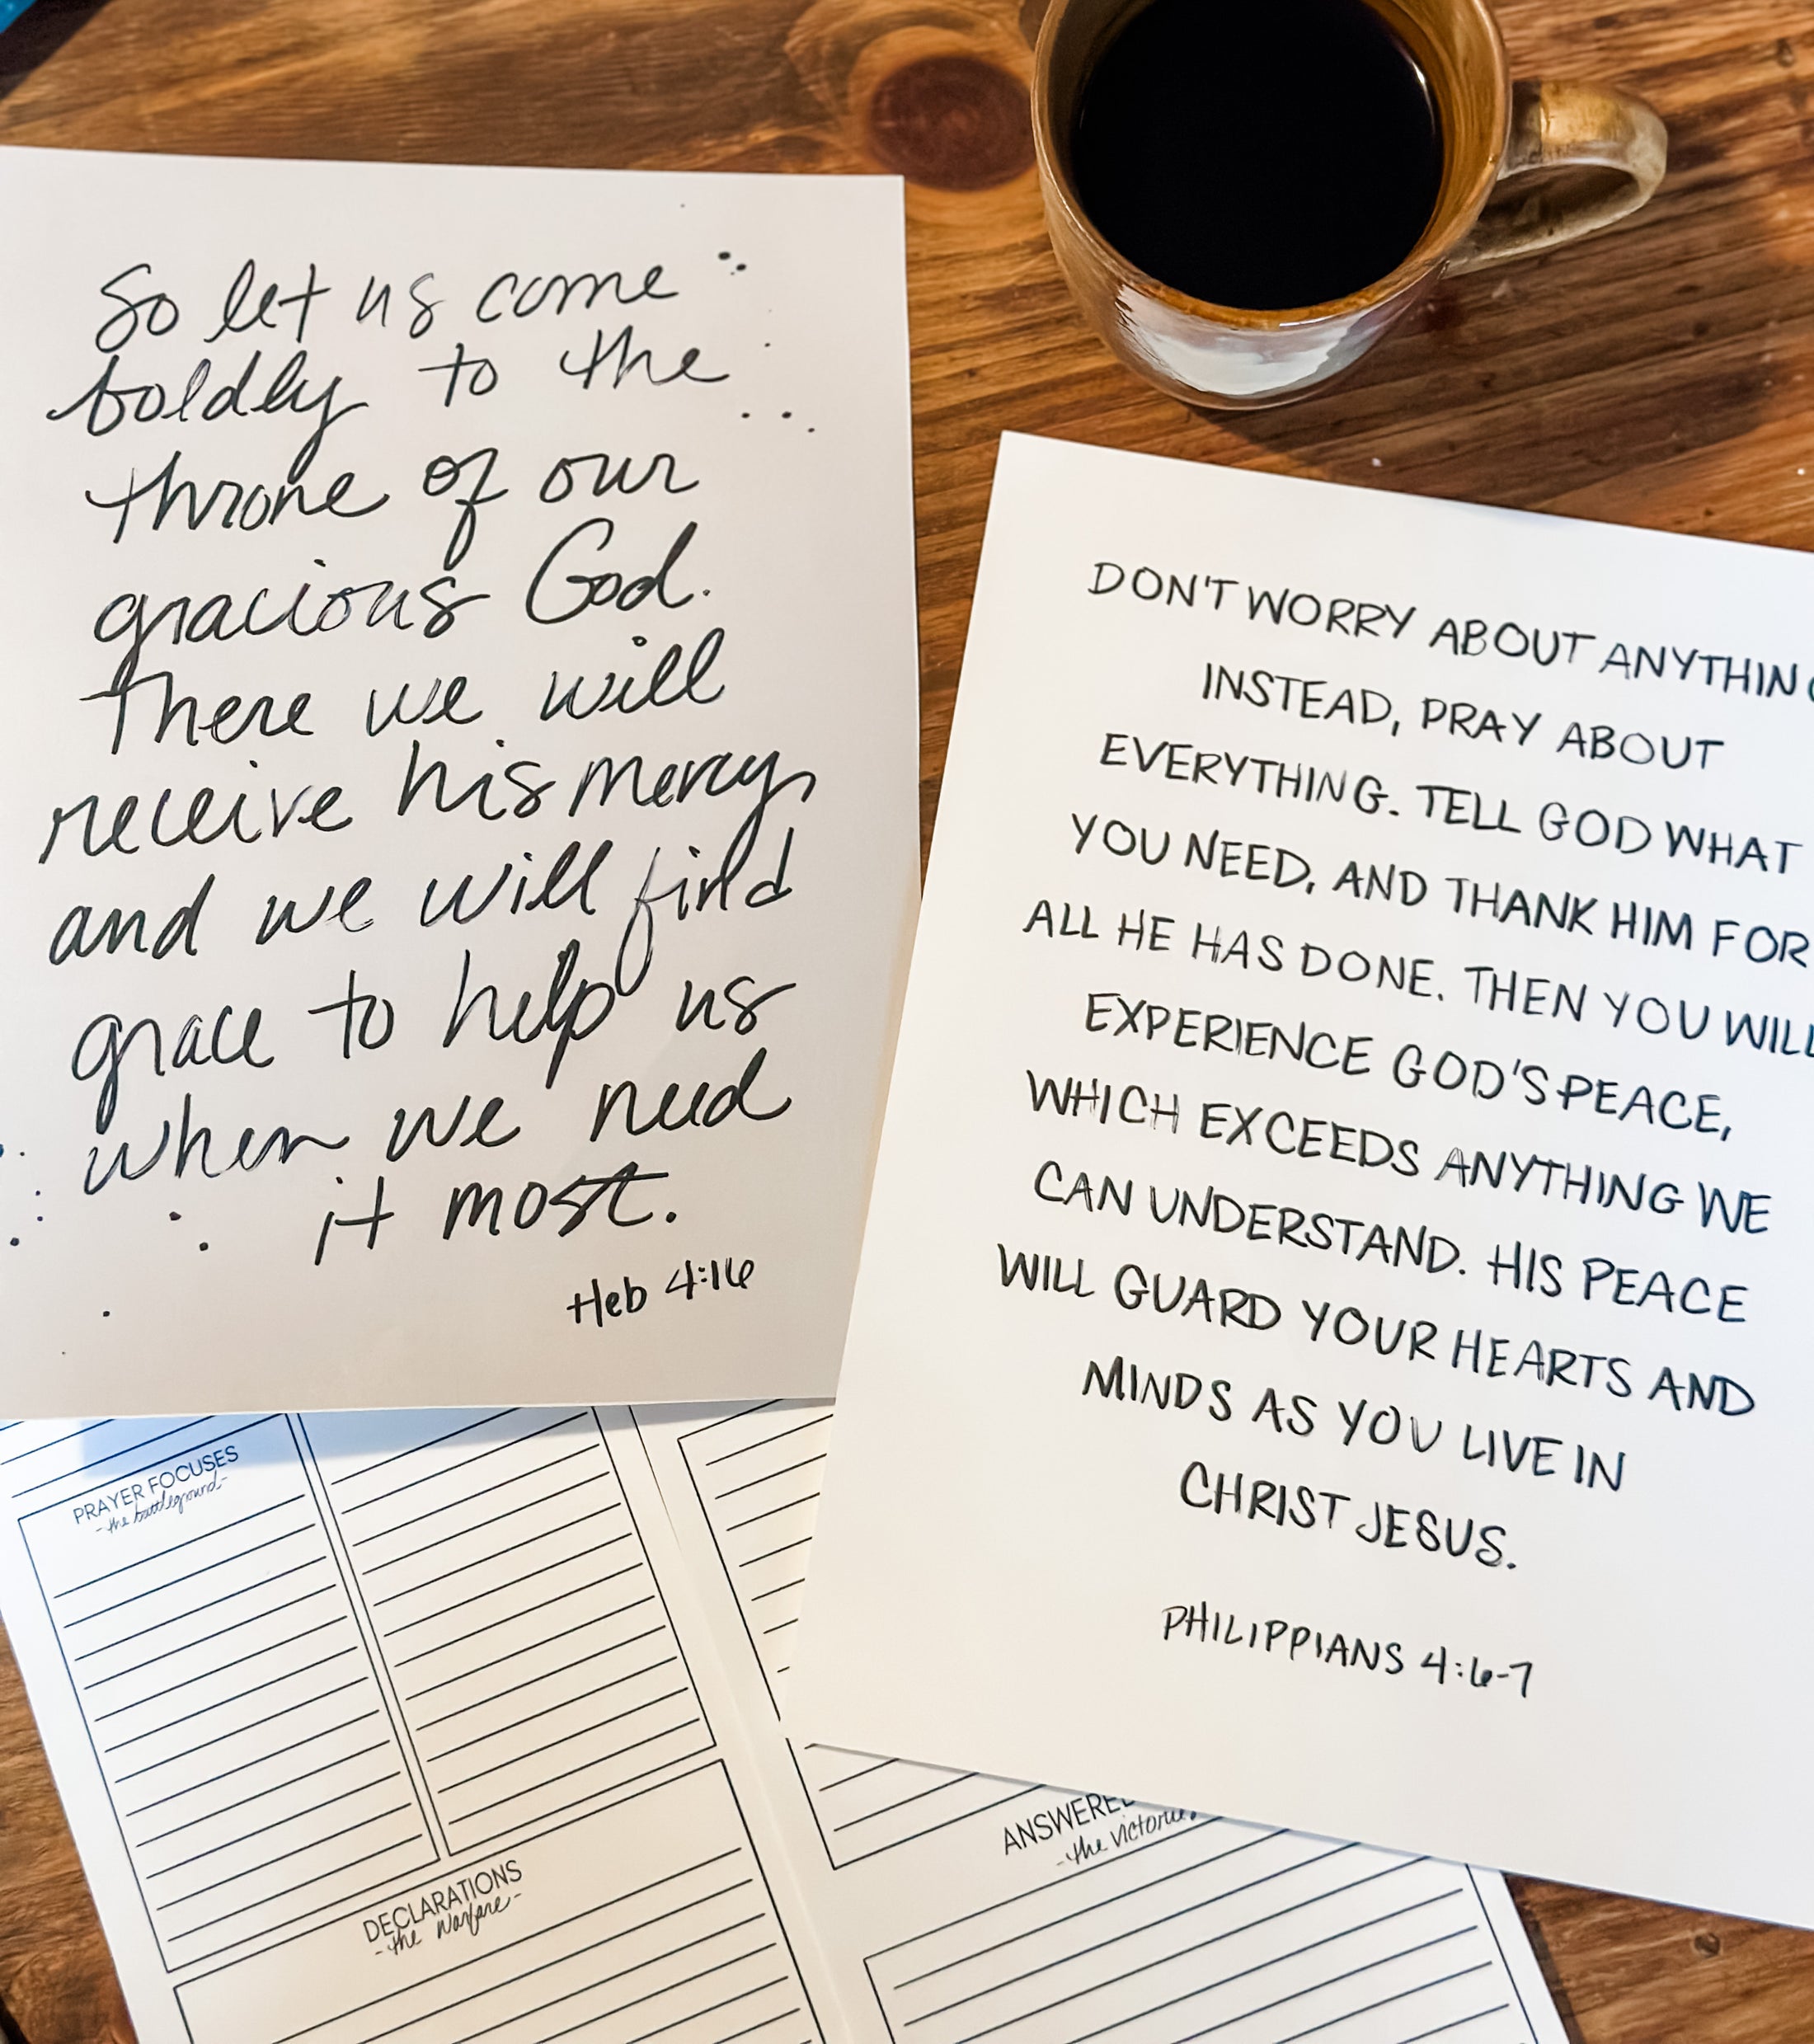 So let us come
boldly to the
throne of our
gracious God.
There we will
receive his mercy,
and we will find
grace to help us
when we need
it most.
Heb 4:16
DON'T WORRY ABOUT ANYTHING
INSTEAD, PRAY ABOUT
EVERYTHING. TELL GOD WHAT
YOU NEED, AND THANK HIM FOR
ALL HE HAS DONE. THEN YOU WILL
EXPERIENCE GOD'S PEACE,
WHICH EXCEEDS ANYTHING WE
CAN UNDERSTAND. HIS PEACE
WILL GUARD YOUR HEARTS AND
MINDS AS YOU LIVE IN
CHRIST JESUS.
PHILIPPIANS 4:6-7
PRAYER FOCUSES
-the battleground-
DECLARATIONS
-the warfare-
ANSWERED
-the victories